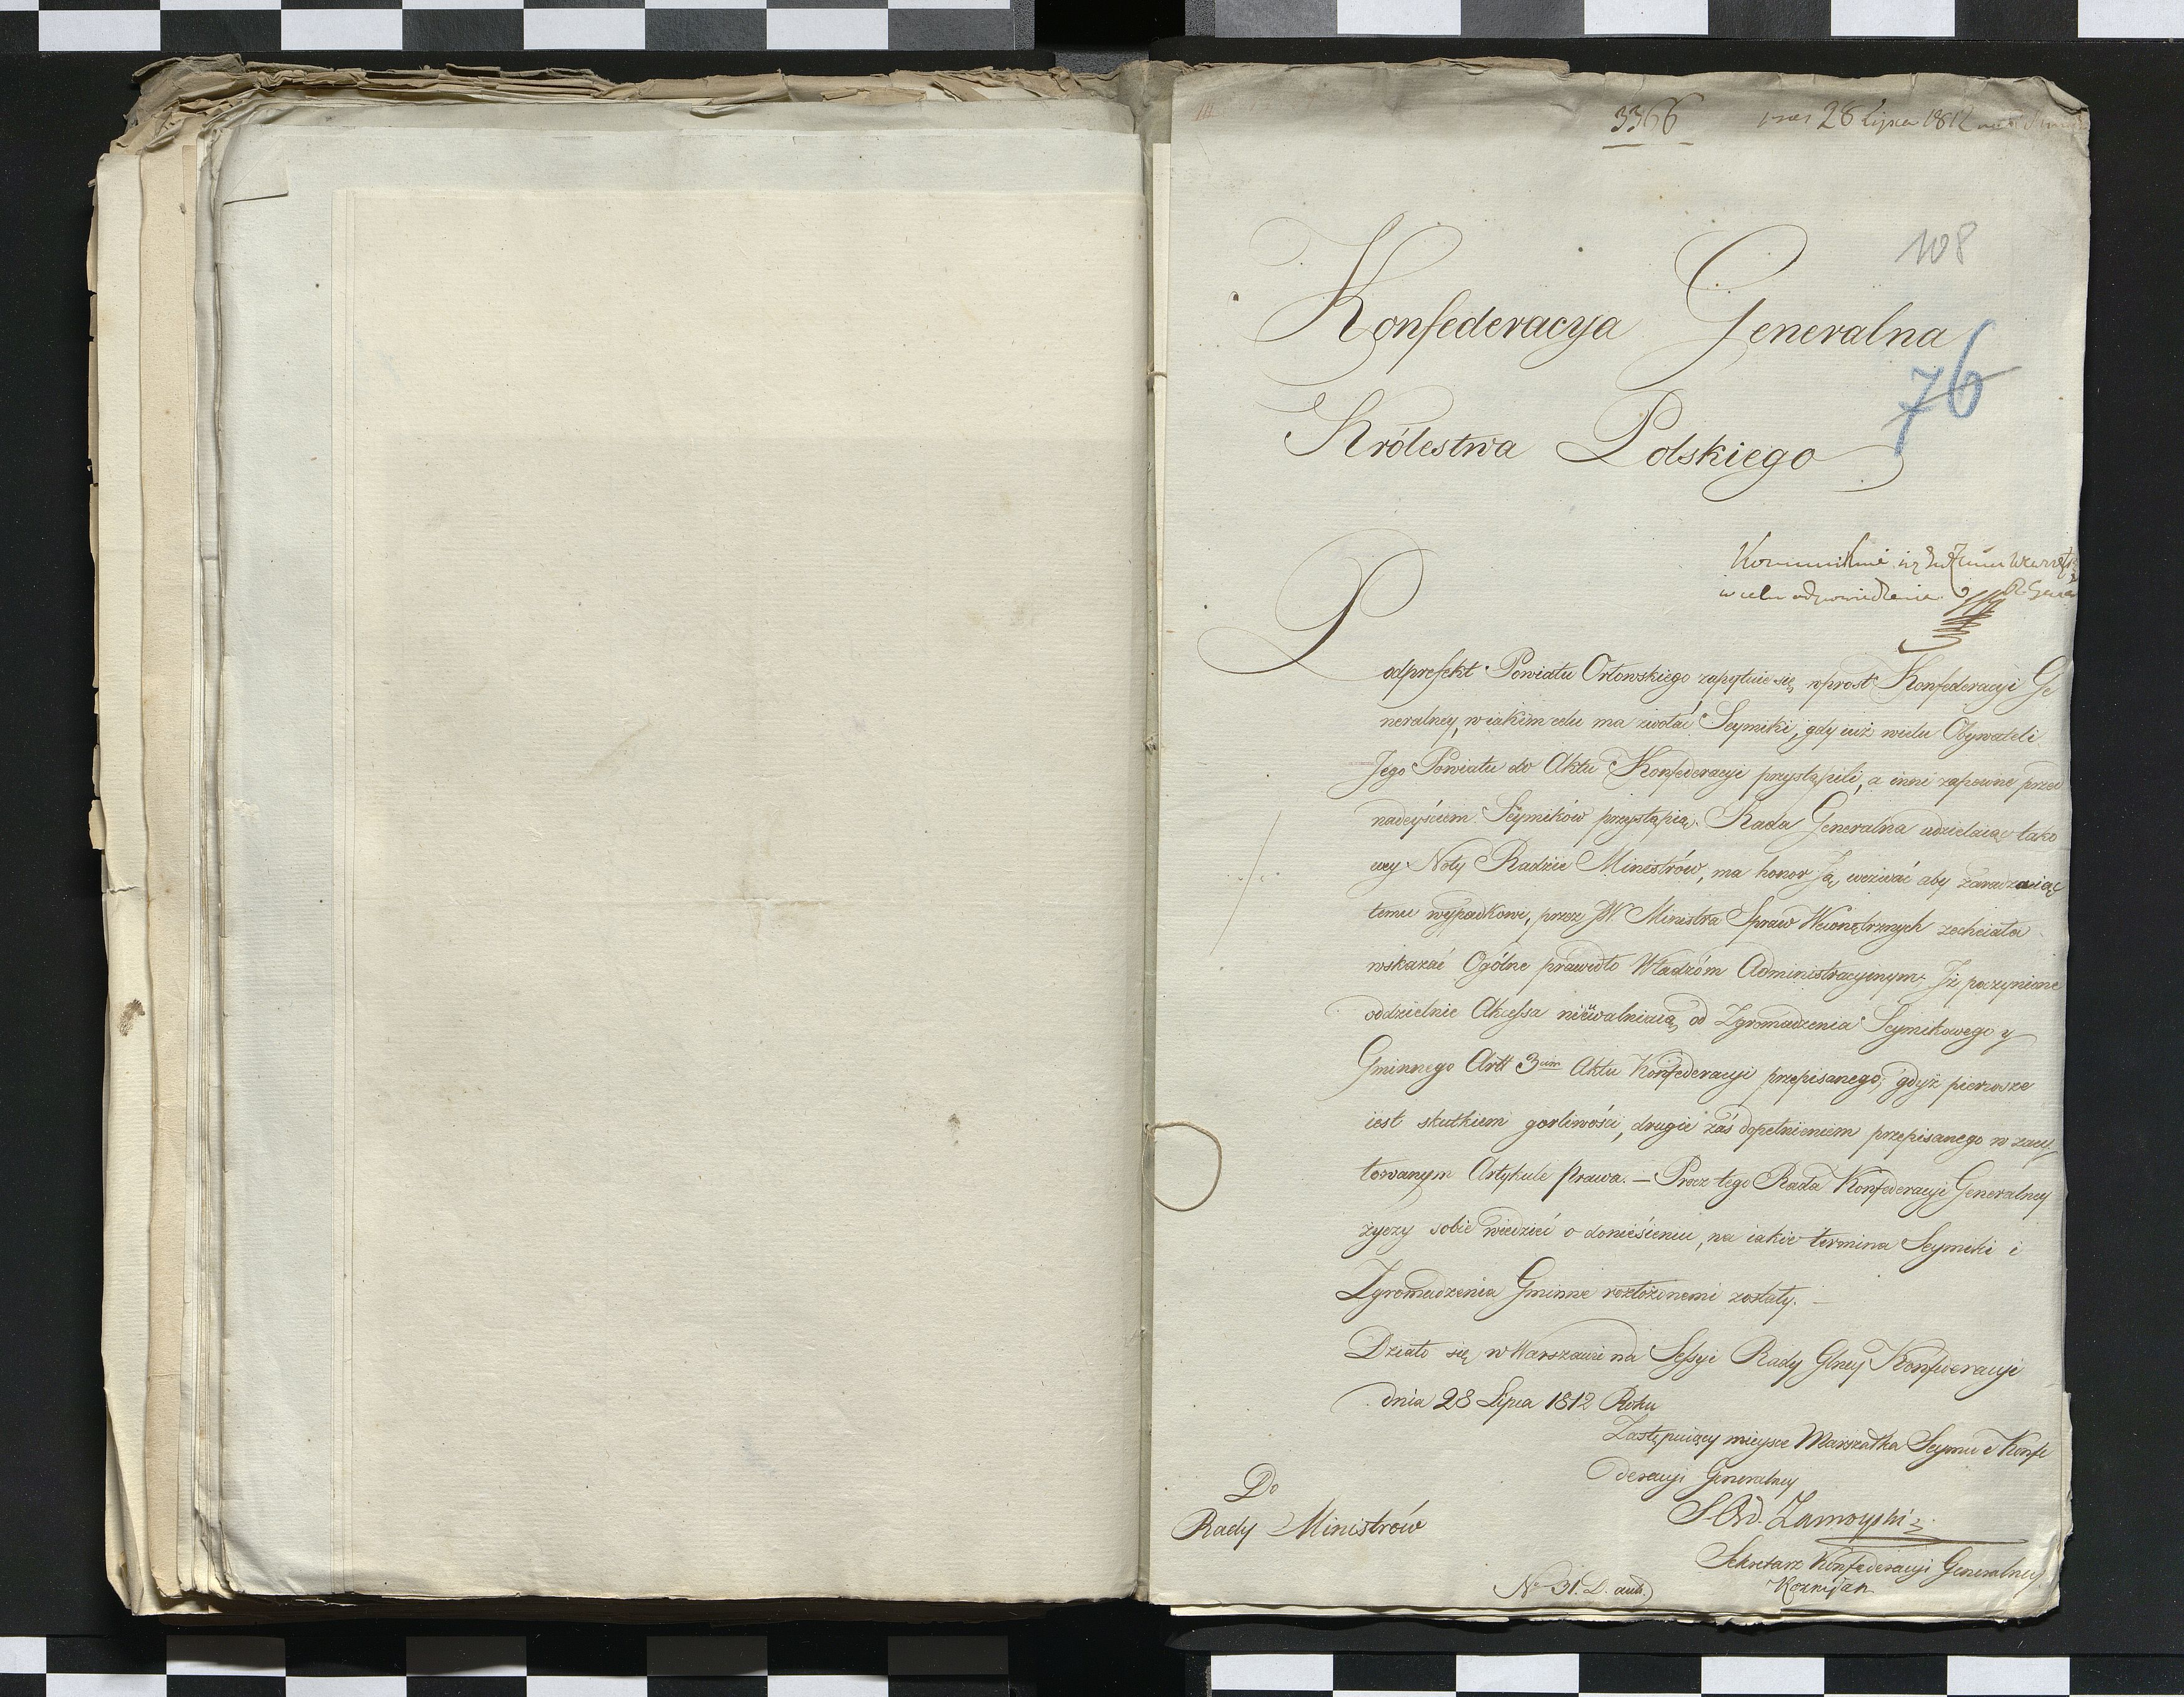 3366
28 Lipca 1812
108
Konfederacya Generalna
76
Królestwa Polskiego
w celu odpowiedzenia
Podprefekt Powiatu Orłowskiego zapytuie się wprost Konfederacyi Ge
neralney, w iakim celu ma zwołać Seymiki, gdy iuż wielu Obywateli
Jego Powiatu do Aktu Konfederacyi przystąpili, a inni zapewne przed
nadeyściem Seymików przystąpią. Rada Generalna udzielaiąc tako
wey Noty Radzie Ministrów, ma honor Ją wezwać aby zaradzaiąc
temu wypadkowi, przez JW. Ministra Spraw Wewnętrznych zechciała
wskazać Ogólne prawidło Władzóm Administracyinym, Iż poczynione
oddzielnie Akcessa nieuwalniaią od Zgromadzenia Seymikowego y
Gminnego Artt 3cim Aktu Konfederacyi przepisanego, gdyż pierwsze
iest skutkiem gorliwości, drugie zaś dopełnieniem przepisanego w zacy
towanym Artykule prawa. — Procz tego Rada Konfederacyi Generalney
życzy sobie wiedzieć o doniesieniu, na iakie termina Seymiki i
Zgromadzenia Gminne rozłożonemi zostały. —
Działo się w Warszawie na Sessyi Rady Glney Konfederacyi
dnia 28 Lipca 1812 Roku
Zastępuiący mieysce Marszałka Seymu i Konfe
deracyi Generalney
S Ord. Zamoyski
Do
Rady Ministrów
Sekretarz Konfederacyi Generalney
Koźmian
No 31. D. aub.